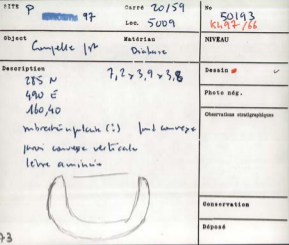 SITE P 97
Carré 20/59
Loc. 5009
No 50193
Kh97/66
Object
Matériau
Diabase
NIVEAU
Description
7,2 x 3,9 x 3,8
285 N
490 E
160,40
convexe
paroi convexe verticale
lèvre amincie
Dessin
Photo nég.
Observations stratigraphiques
Conservation
Déposé
73